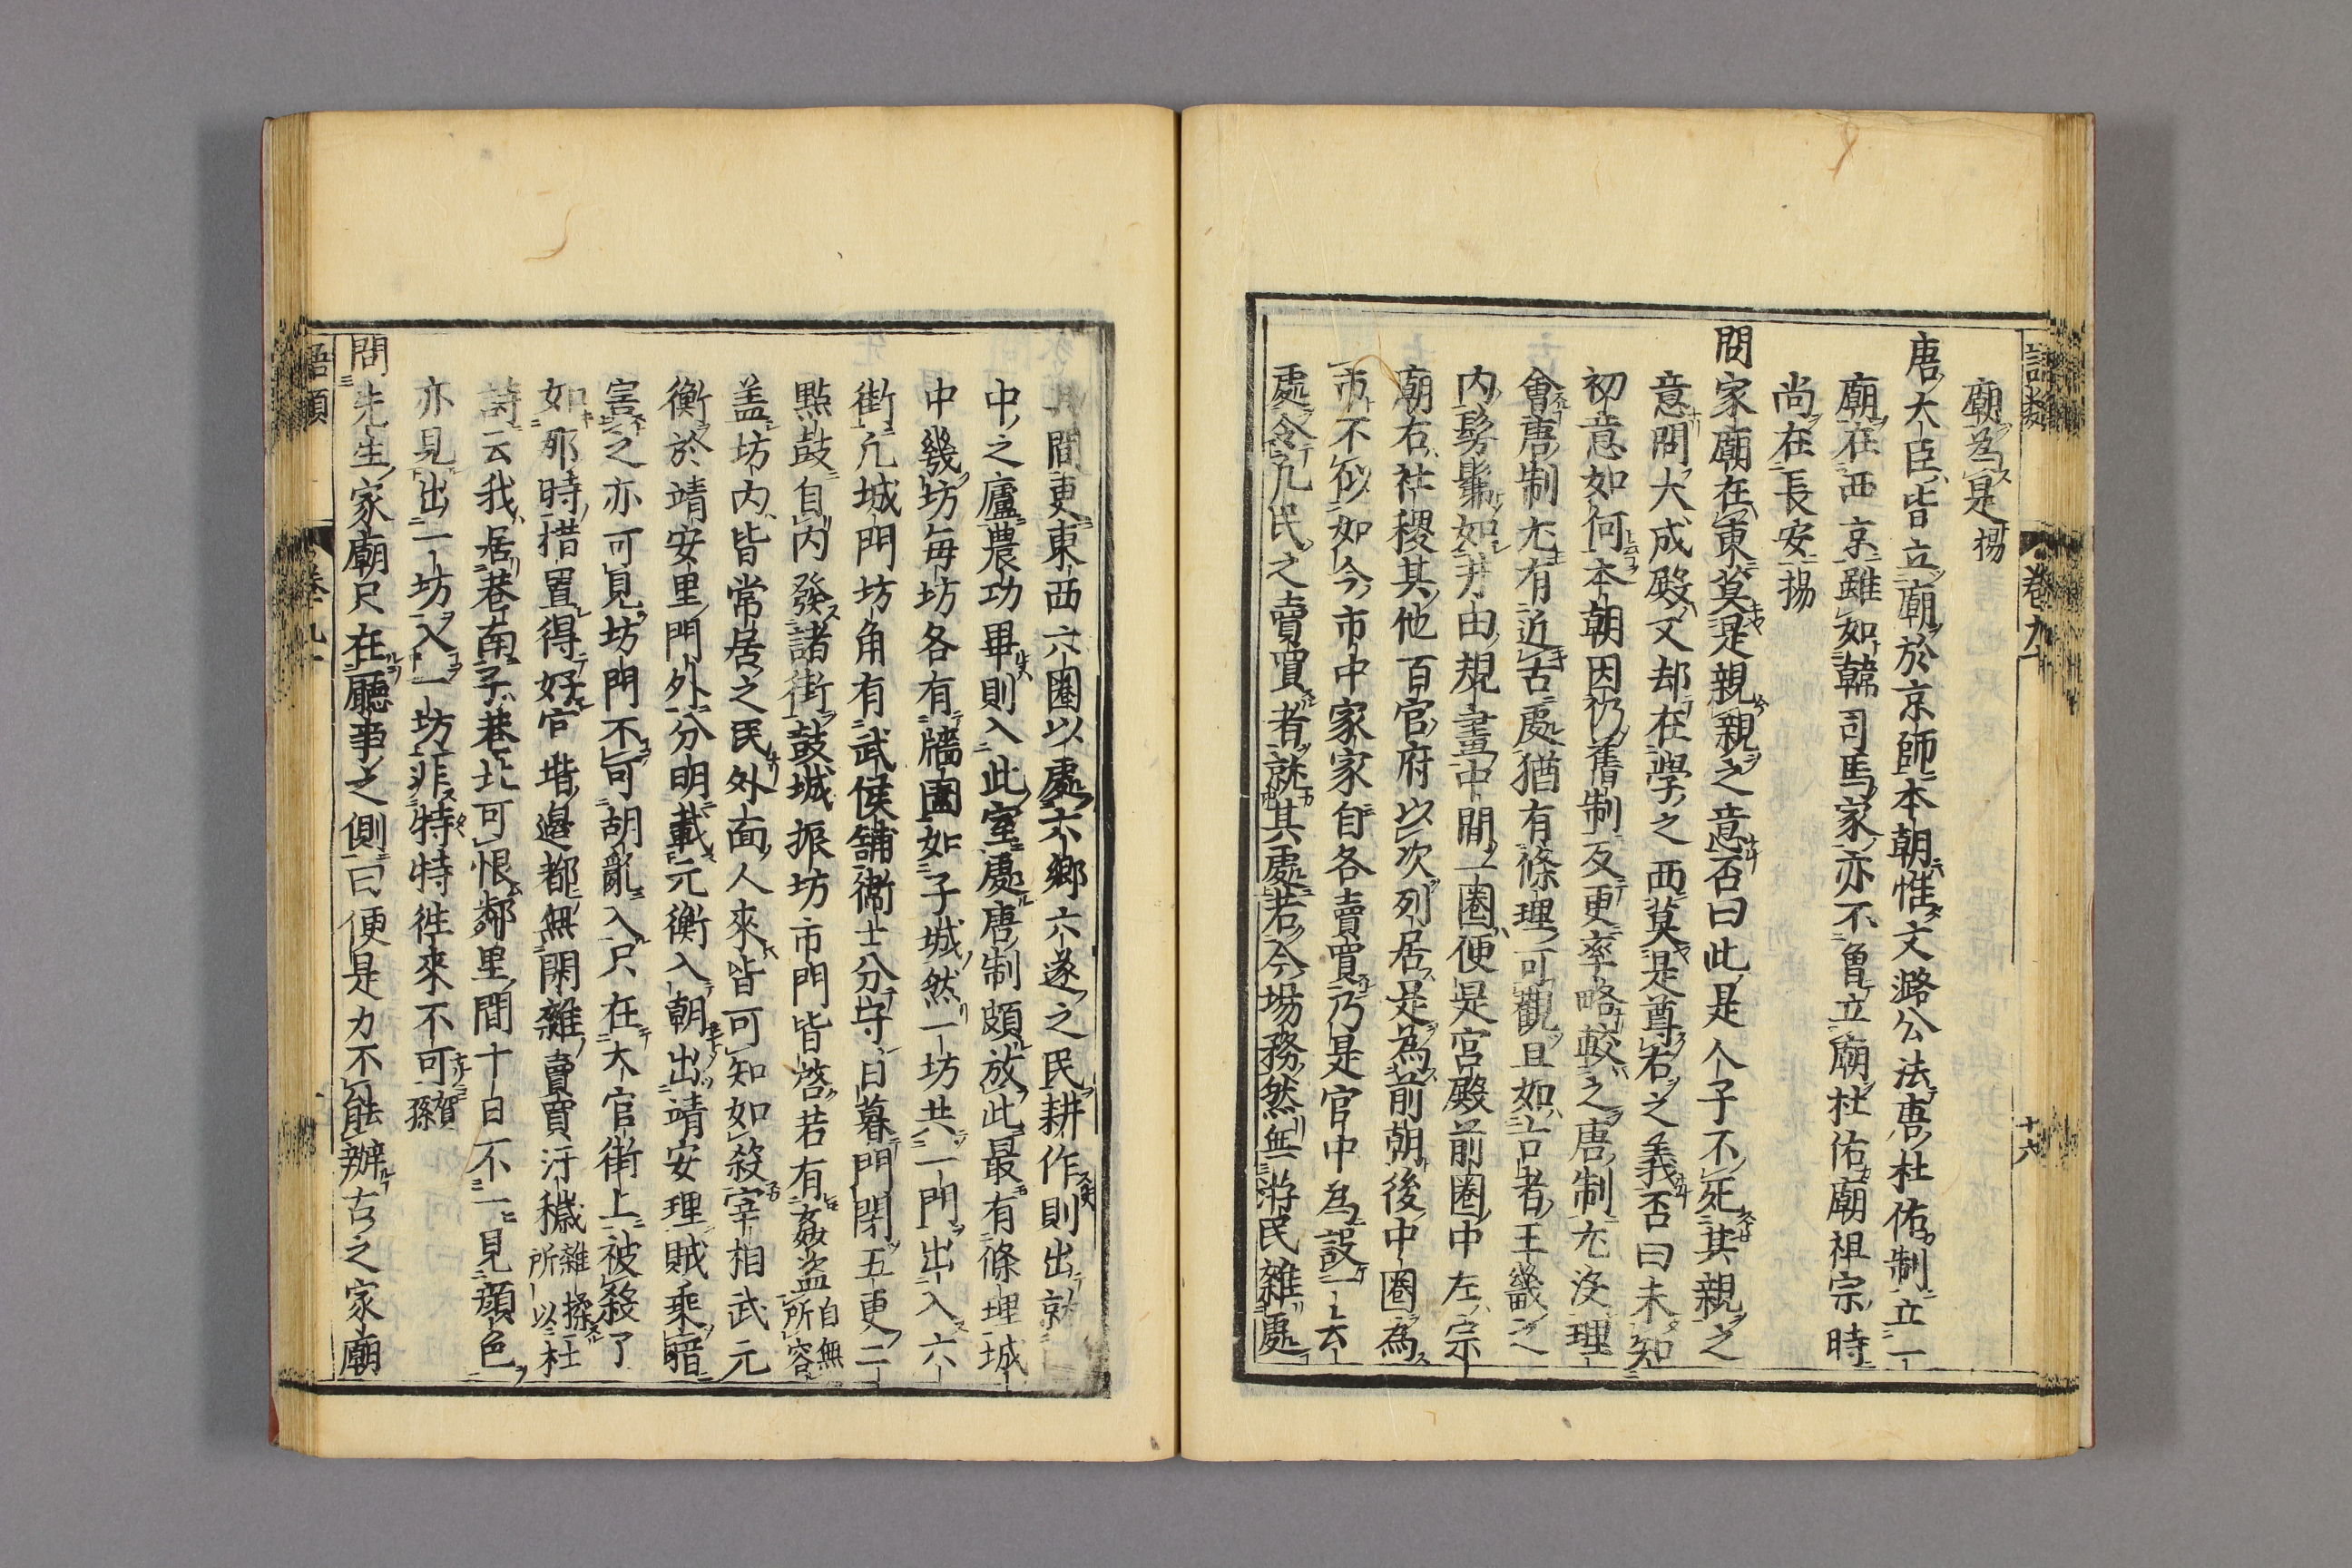 語類 卷九十 十六
廟為是揚
唐大臣皆立廟於京師本朝惟文潞公法唐杜佑制立一
廟在西京雖如韓司馬家亦不曾立廟杜佑廟祖宗時
尚在長安揚
問家廟在東莫是親親之意否曰此是人子不死其親之
意問大成殿又却在學之西莫是尊右之義否曰未知
初意如何本朝因仍舊制反更率略較之唐制尤沒理
會唐制尤有近古處猶有條理可觀且如古者王畿之
內髣髴如井田規畫中間一圈便是宮殿前圈中左宗
廟右社稷其他百官府以次列居是為前朝後中圈為
市不似如今市中家家自各賣買乃是官中為設一去
處令凡民之賣買者就其處若今場務然無游民雜處
其間更東西六圈以處六鄉六遂之民耕作則出就
中之廬農功畢則入此室處唐制頗放此最有條理城
中幾坊每坊各有牆圍如子城然一坊共一門出入六
街凡城門坊角有武侯鋪衞士分守日暮門閉五更二
點鼓自內發諸街鼓城振坊市門皆啓若有姦盜自無所容
盖坊內皆常居之民外面人來皆可知如殺宰相武元
衡於靖安里門外分明載元衡入朝出靖安理賊乘暗
害之亦可見坊門不可胡亂入只在大官街上被殺了
如那時措置得好官堦邊都無閑雜賣買汙穢雜揉杜所以
詩云我居巷南子巷北可恨鄰里間十日不一見顏色
亦見出一坊入一坊非特特徃來不可賀孫
問先生家廟只在廳事之側曰便是力不能辦古之家廟
語類 卷九十